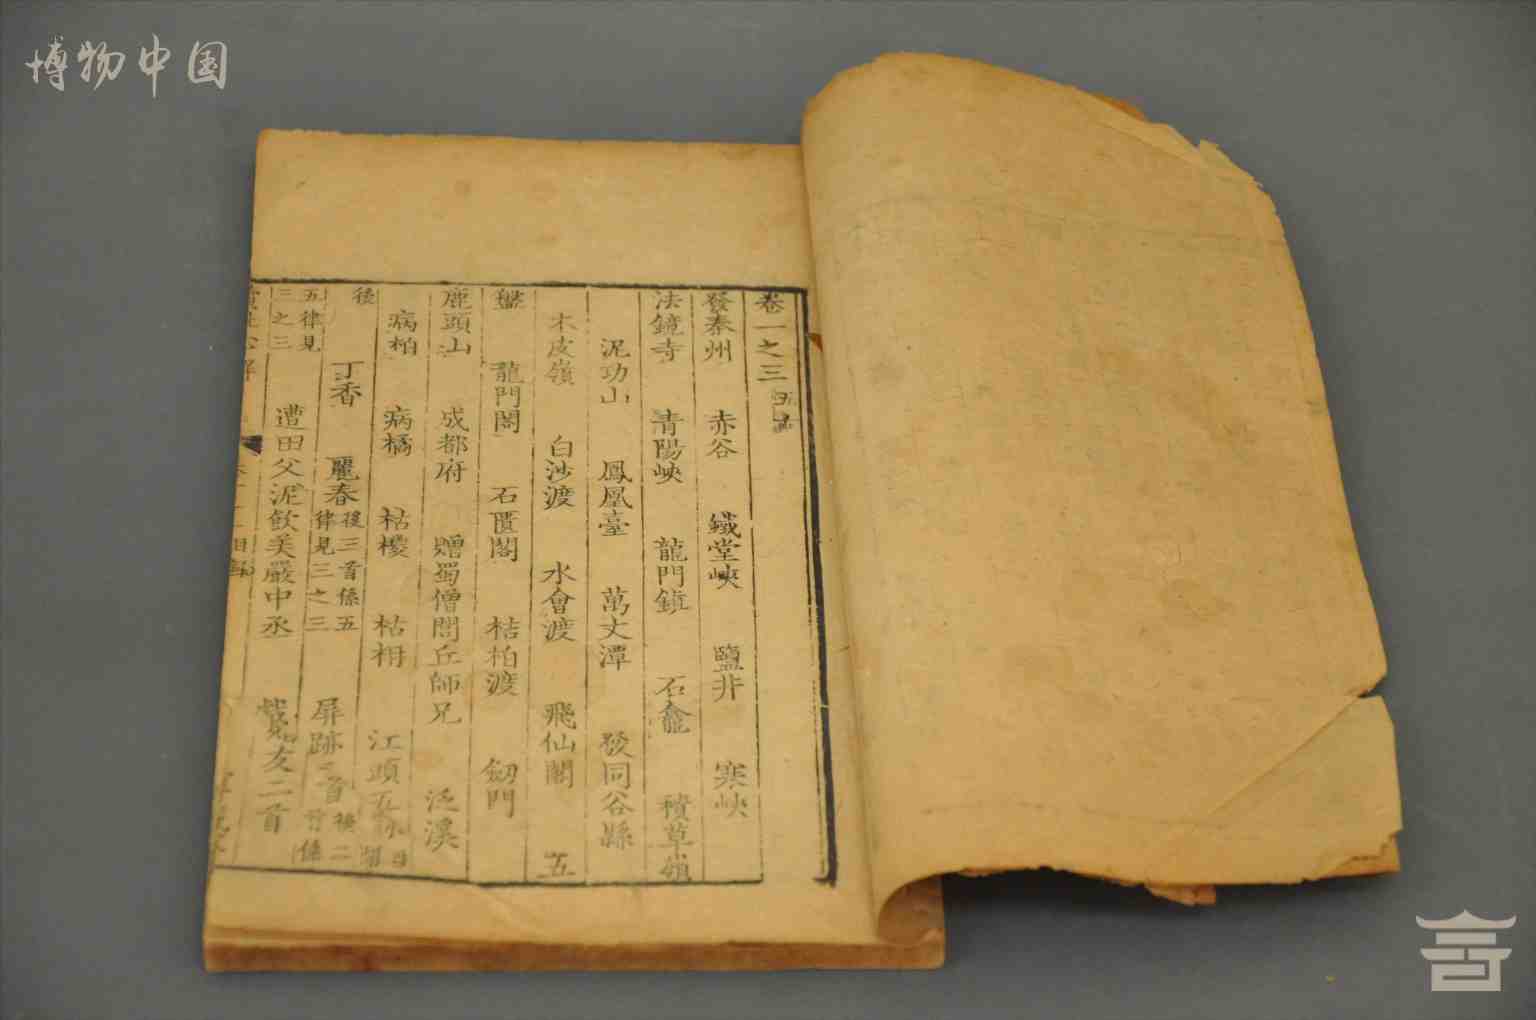 博物中国
卷一之三 五古
發秦州 赤谷 鐵堂峽 鹽井 寒峽
法鏡寺 青陽峽 龍門鎮 石龕 積草嶺
泥功山 鳳凰臺 萬丈潭 發同谷縣
木皮嶺 白沙渡 水會渡 飛仙閣 五
盤 龍門閣 石匱閣 桔柏渡 劒門
鹿頭山 成都府 贈蜀僧閭丘師兄 泛溪
病柏 病橘 枯椶 枯枏 江頭五
後 丁香 麗春 後三首係五律見三之三 屏跡二首 後二首係
五律見三之三 遭田父泥飲美嚴中丞 鷰友二首
目錄